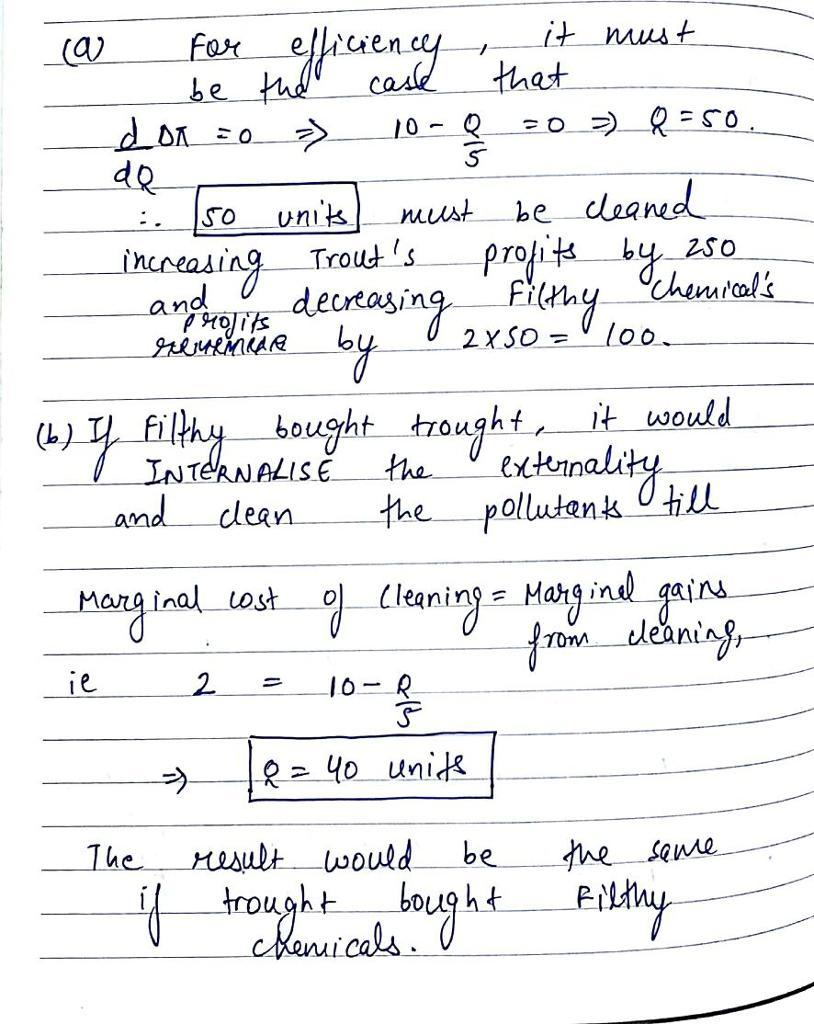 (a) For efficiency, it must
be the case that
d Δπ = 0 ⇒ 10 - Q/5 = 0 ⇒ Q = 50.
dQ
∴ 50 units must be cleaned
increasing Trout's profits by 250
and decreasing Filthy Chemical's
profits by 2x50 = 100.
(b) If Filthy bought trought, it would
INTERNALISE the externality
and clean the pollutants till
Marginal cost of Cleaning = Marginal gains
from cleaning,
ie 2 = 10 - Q/5
⇒ Q = 40 units
The result would be the same
if trought bought Filthy
chemicals.